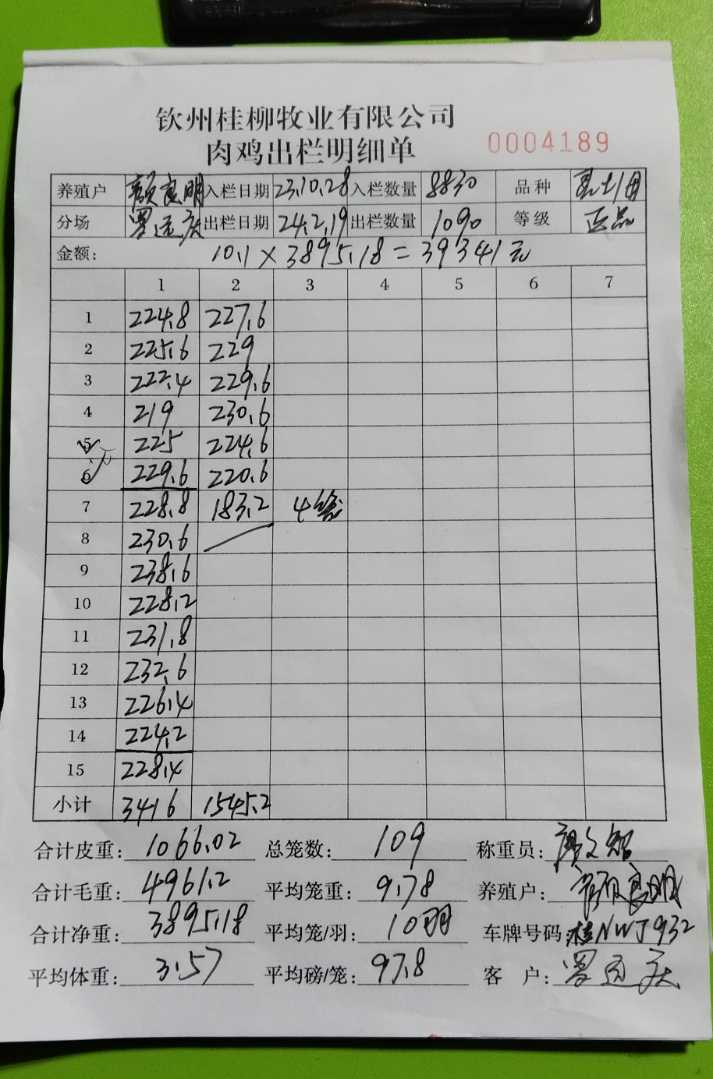 钦州桂柳牧业有限公司
肉鸡出栏明细单 0004189
养殖户 良明 入栏日期 23.10.28 入栏数量 8830 品种
分场 出栏日期 24.2.19 出栏数量 1090 等级 正品
金额: 10.1×3895.18=39341元
1 2 3 4 5 6 7
1 224.8 227.6
2 225.6 229
3 222.4 229.6
4 219 230.6
5 225 224.6
6 229.6 220.6
7 228.8 183.2 4笼
8 230.6
9 238.6
10 228.2
11 231.8
12 232.6
13 226.4
14 224.2
15 228.4
小计 3416 1545.2
合计皮重: 1066.02 总笼数: 109 称重员: 文
合计毛重: 4961.2 平均笼重: 9.78 养殖户: 良明
合计净重: 3895.18 平均笼/羽: 10羽 车牌号码: 桂NWJ932
平均体重: 3.57 平均磅/笼: 97.8 客 户: